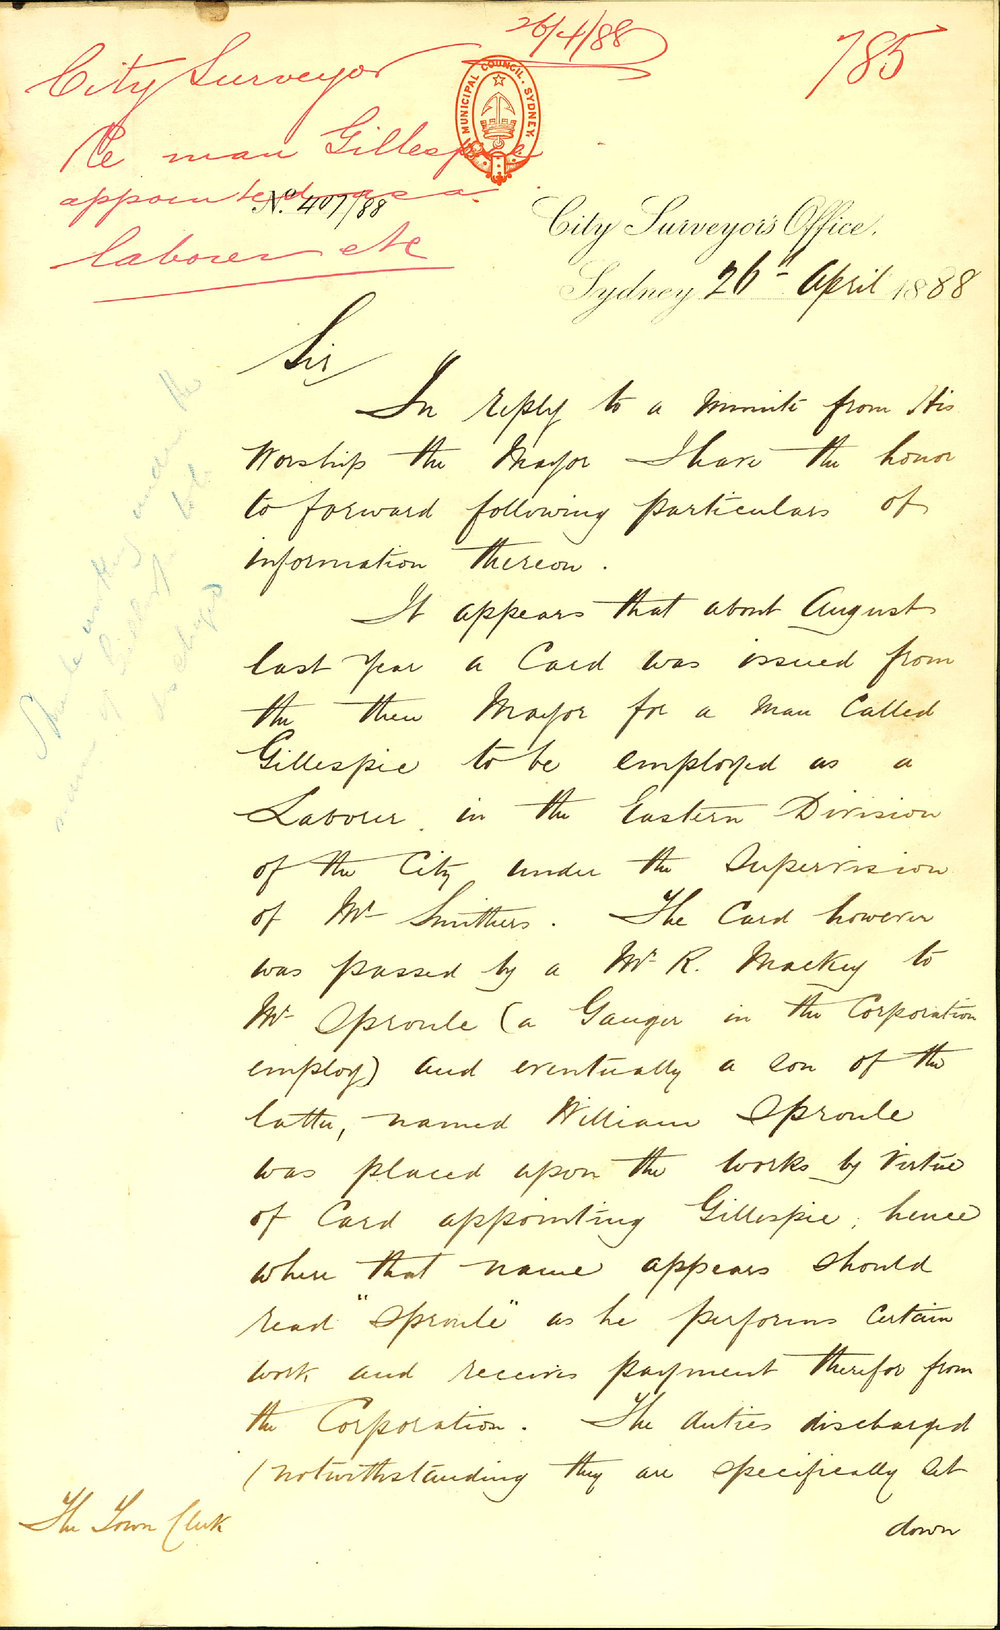 26/4/88
785
City Surveyor
Re man Gillespie
appointed as a
laborer etc
MUNICIPAL COUNCIL. SYDNEY.
No. 407/88
City Surveyor's Office,
Sydney 26th April 1888
Sir
In reply to a minute from His
Worship the Mayor I have the honor
to forward following particulars of
information thereon.
It appears that about August
last year a Card was issued from
the then Mayor for a man called
Gillespie to be employed as a
Laborer in the Eastern Division
of the City under the Supervision
of Mr Smithers. The Card however
was passed by a Mr R. Mackey to
Mr Sproule (a Ganger in the Corporation
employ) and eventually a son of the
latter, named William Sproule
was placed upon the works by virtue
of Card appointing Gillespie; hence
where that name appears should
read "Sproule" as he performs certain
work and receives payment therefor from
the Corporation. The duties discharged
(notwithstanding they are specifically set
down
The Town Clerk